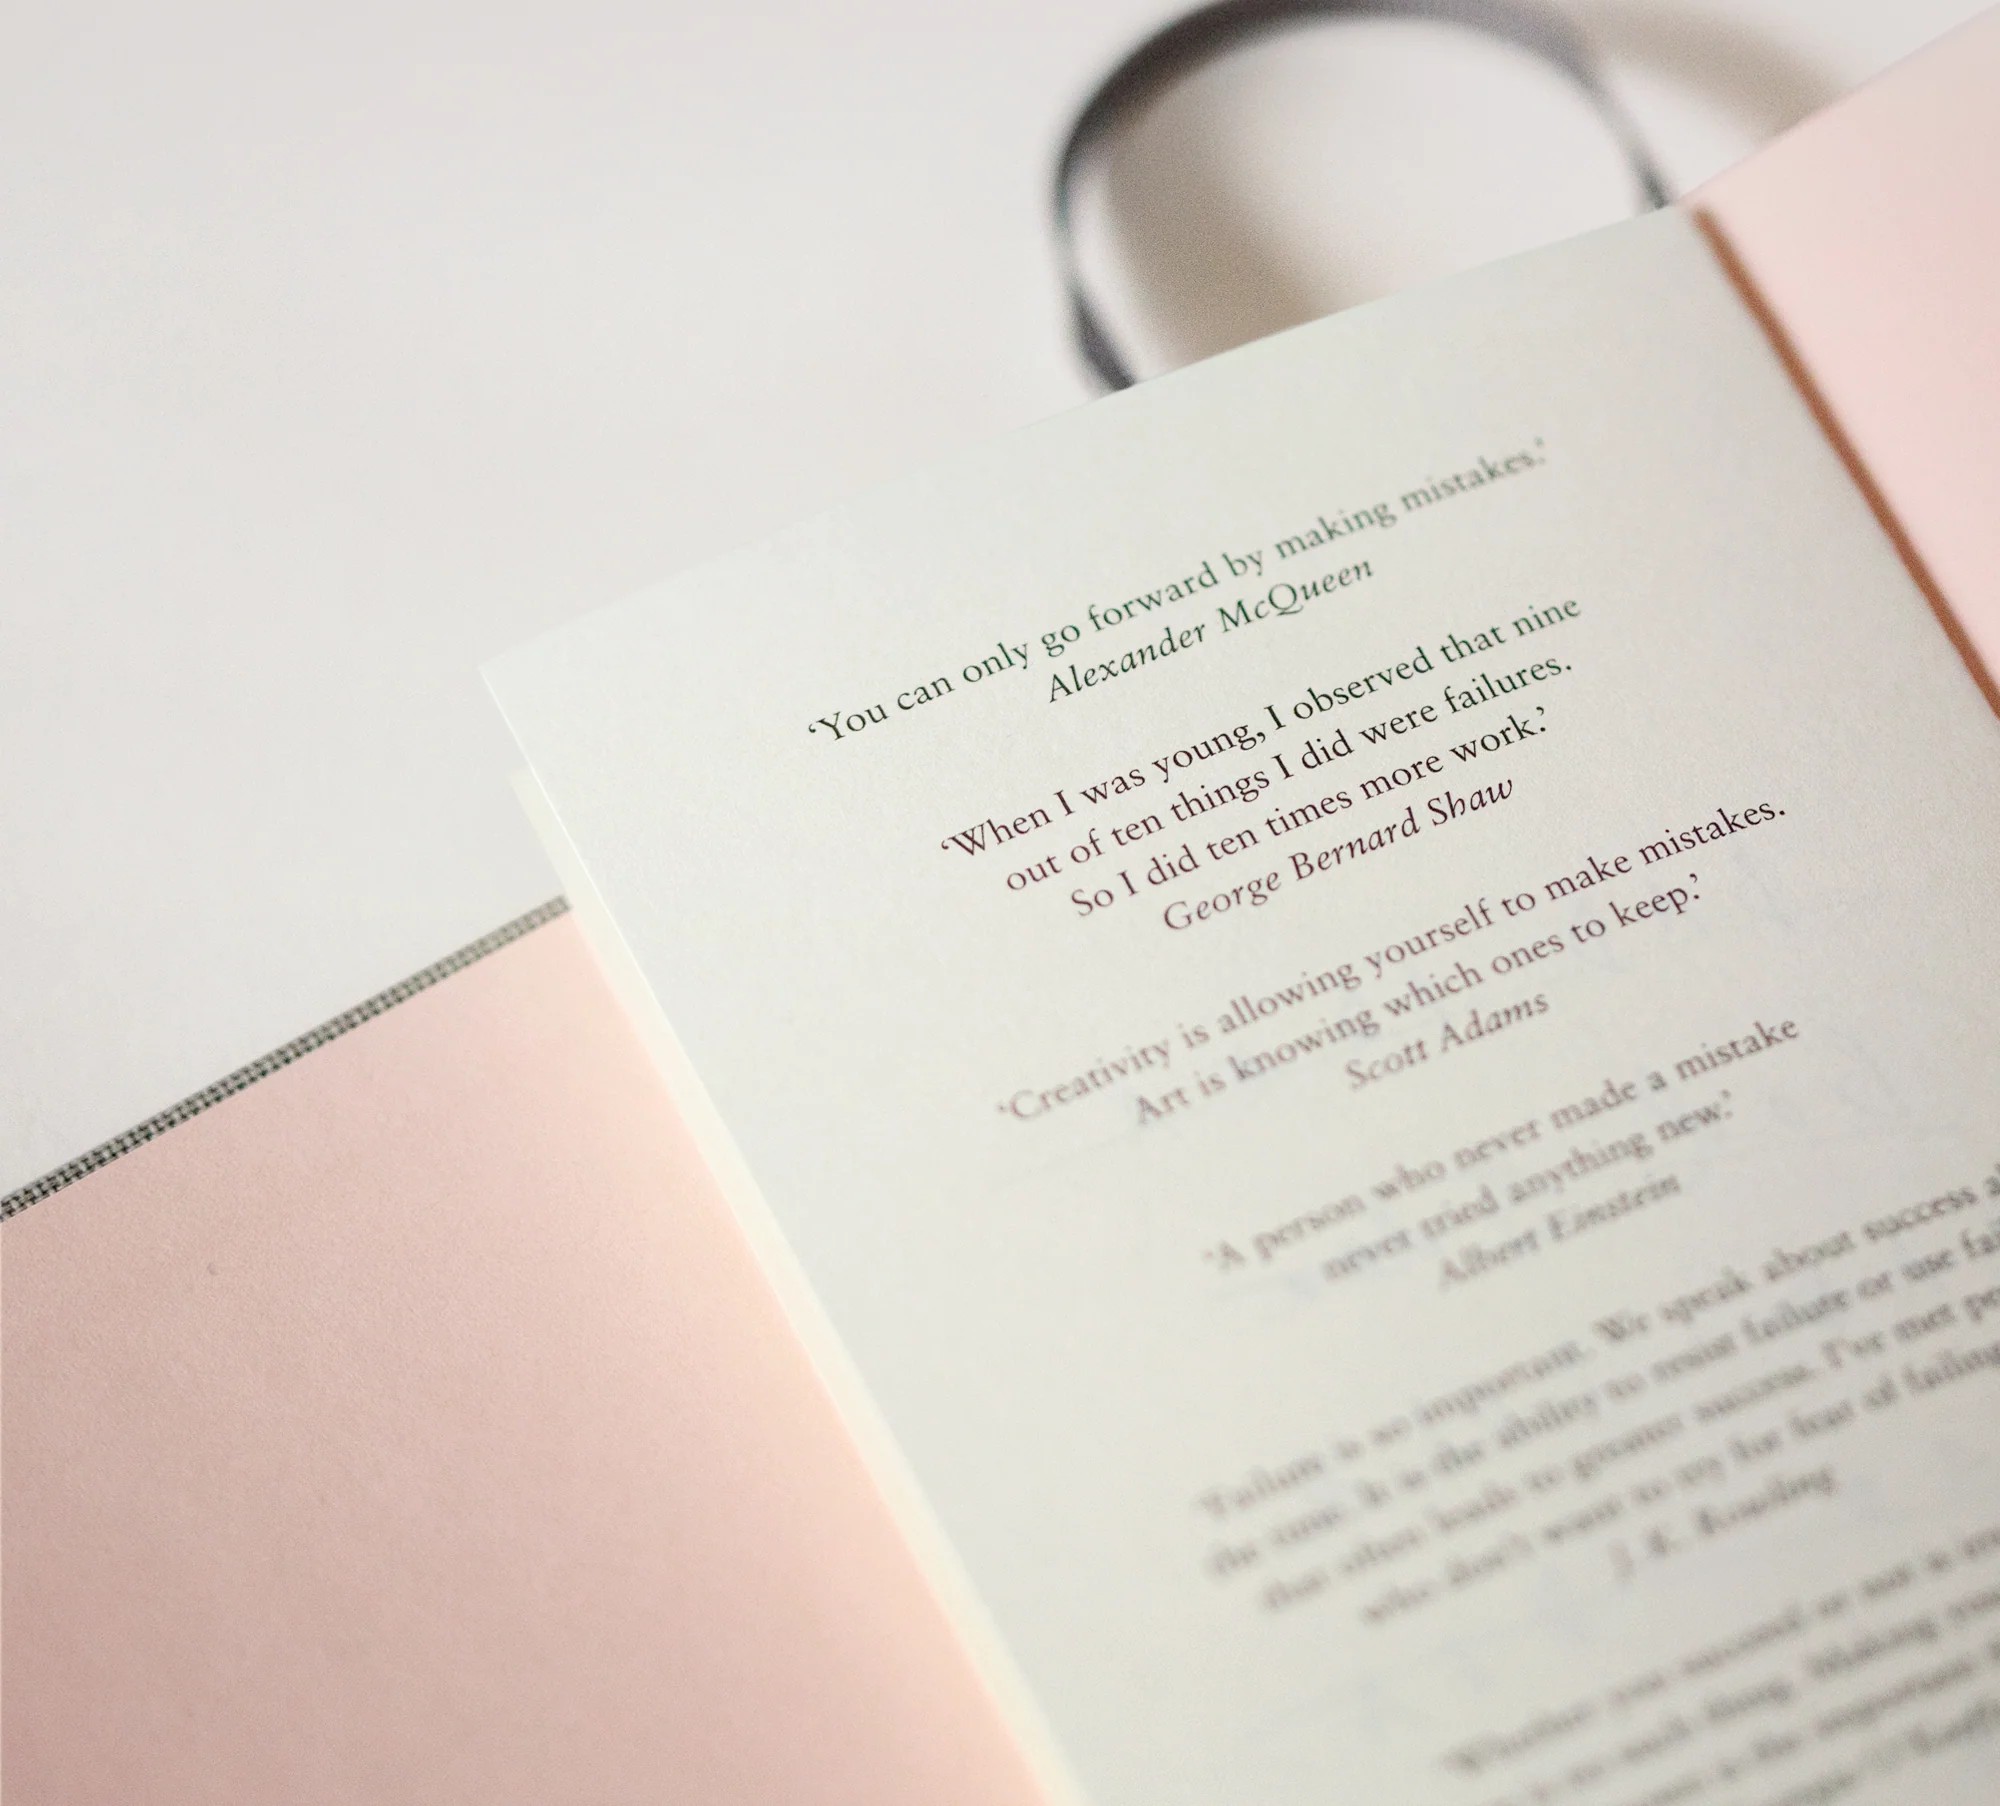 ‘You can only go forward by making mistakes.’
Alexander McQueen
‘When I was young, I observed that nine
out of ten things I did were failures.
So I did ten times more work.’
George Bernard Shaw
‘Creativity is allowing yourself to make mistakes.
Art is knowing which ones to keep.’
Scott Adams
‘A person who never made a mistake
never tried anything new.’
Albert Einstein
‘Failure is so important. We speak about success
the time. It is the ability to resist failure or use
that often leads to greater success. I’ve met
who don’t want to try for fear of failing
J. K. Rowling
‘Whether you succeed or not is